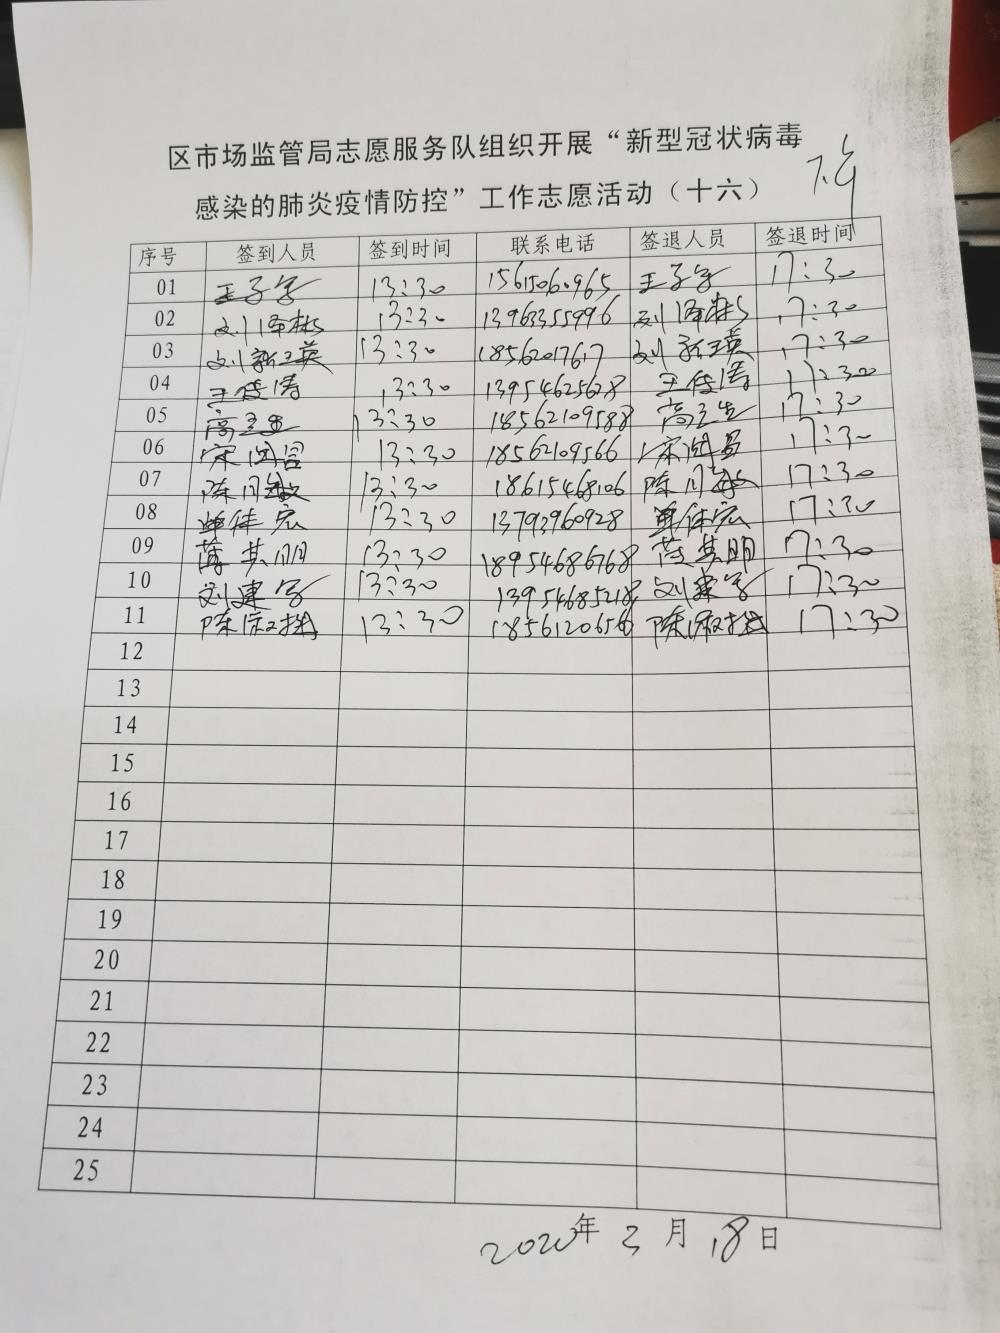 区市场监管局志愿服务队组织开展“新型冠状病毒
感染的肺炎疫情防控”工作志愿活动（十六）
序号 签到人员 签到时间 联系电话 签退人员 签退时间
01 王子学 13:30 15615060965 王子学 17:30
02 刘泽彬 13:30 13963355996 刘泽彬 17:30
03 刘新英 13:30 18562017617 刘新英 17:30
04 王俊涛 13:30 13954625628 王俊涛 17:30
05 13:30 18562109588 17:30
06 13:30 18562109566 17:30
07 陈同敏 13:30 18615468106 陈同敏 17:30
08 单体宏 13:30 13793960928 单体宏 17:30
09 薄其明 13:30 18954686768 薄其明 17:30
10 刘建学 13:30 13954685218 刘建学 17:30
11 13:30 17:30
12
13
14
15
16
17
18
19
20
21
22
23
24
25
2020年3月18日